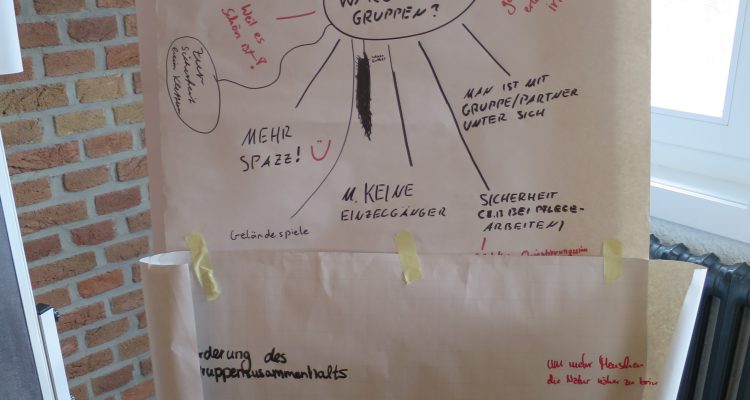 GRUPPEN?
Weil es
schön ist!
Zur
Sicherheit
beim Klettern
MAN IST MIT
GRUPPE/PARTNER
UNTER SICH
MEHR
SPAZZ!
M. KEINE
EINZELGÄNGER
SICHERHEIT
(Z.B BEI PFLEGE-
ARBEITEN)
Geländespiele
rderung des
ruppenzusammenhalts
um mehr Menschen
die Natur näher zu brin